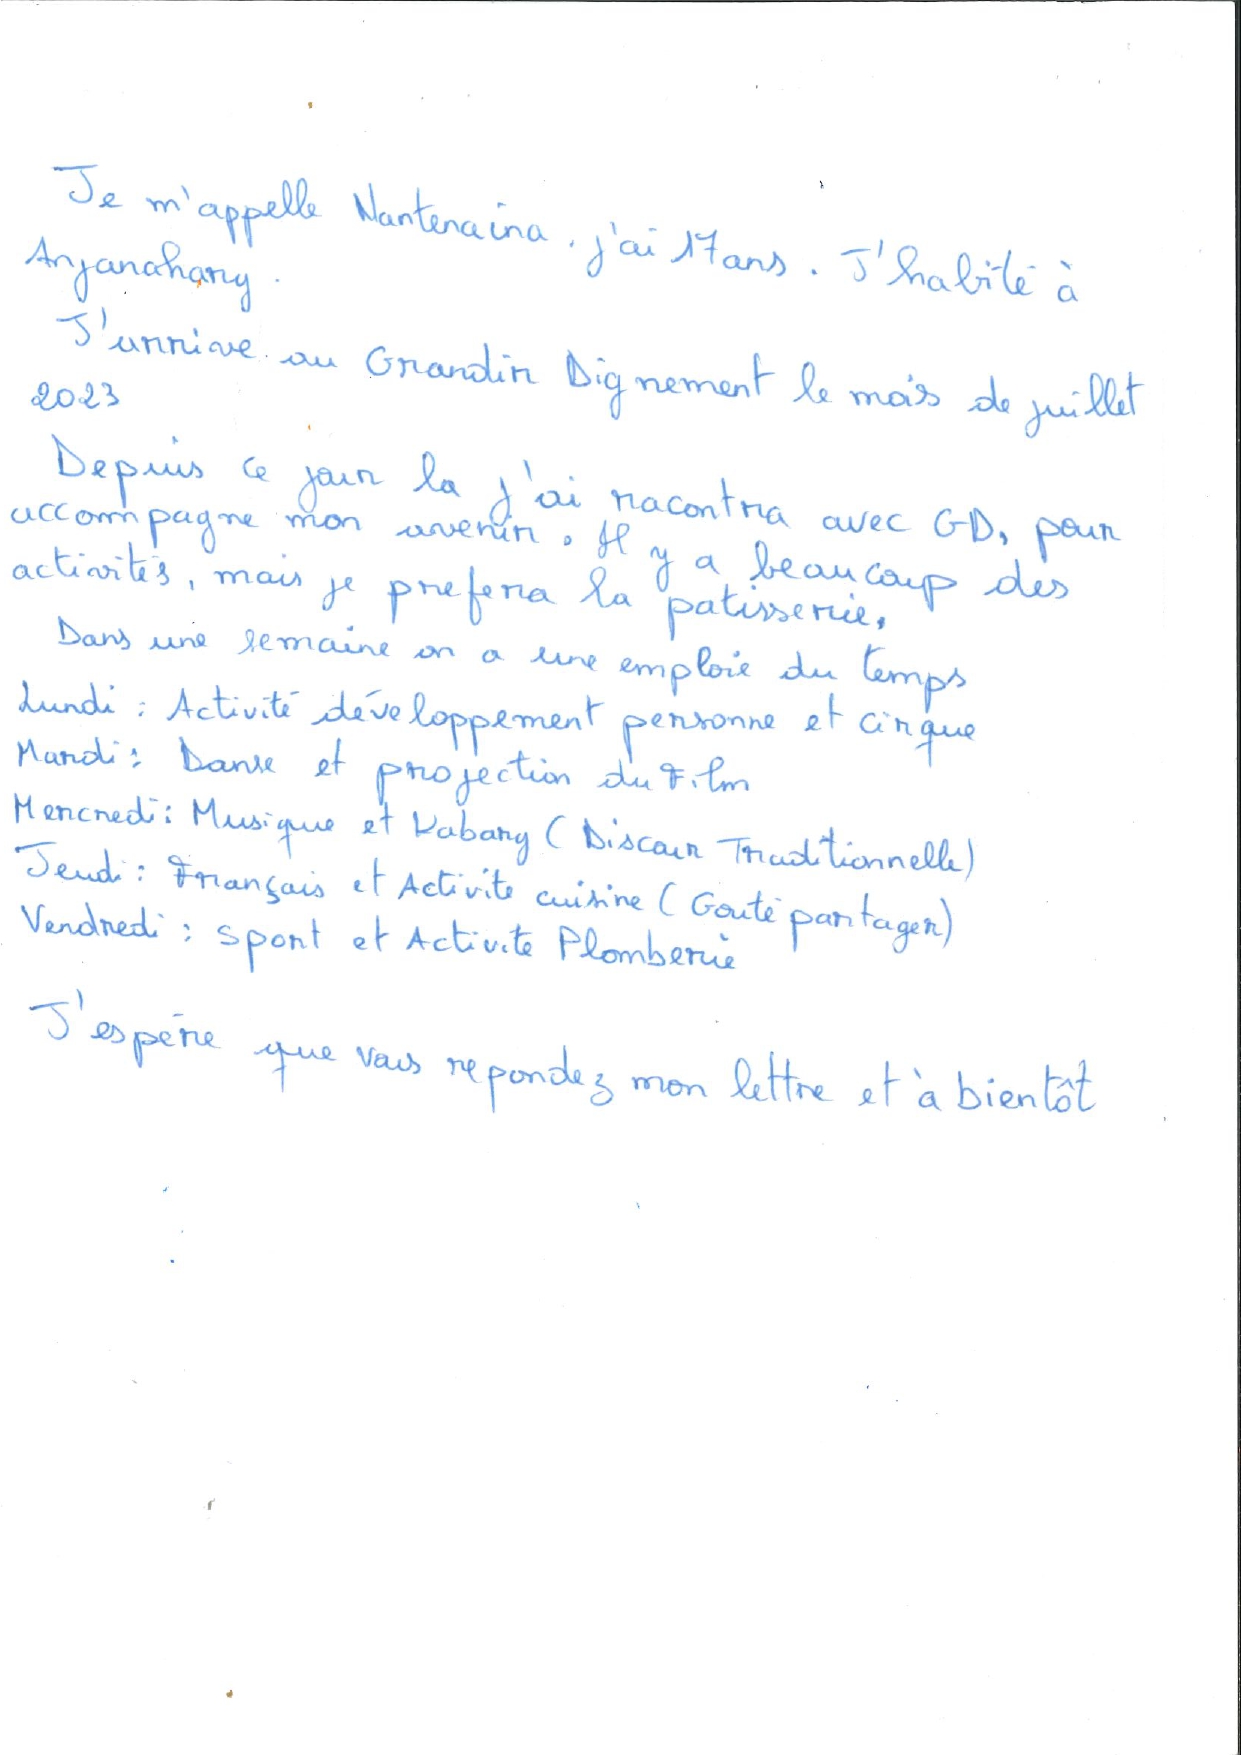 Je m'appelle Nantenaina, j'ai 17 ans. J'habité à
Anjanahary.
J'arrive au Grandir Dignement le mois de juillet
2023
Depuis ce jour la j'ai racontra avec GD, pour
accompagne mon avenir. Il y a beaucoup des
activités, mais je prefera la patisserie,
Dans une semaine on a une emploie du temps
Lundi : Activité développement personne et cirque
Mardi : Danse et projection du Film
Mercredi : Musique et Kabary (Discour Traditionnelle)
Jeudi : Français et Activite cuisine (Gouté partager)
Vendredi : Sport et Activite Plomberie
J'espére que vous repondez mon lettre et à bientôt